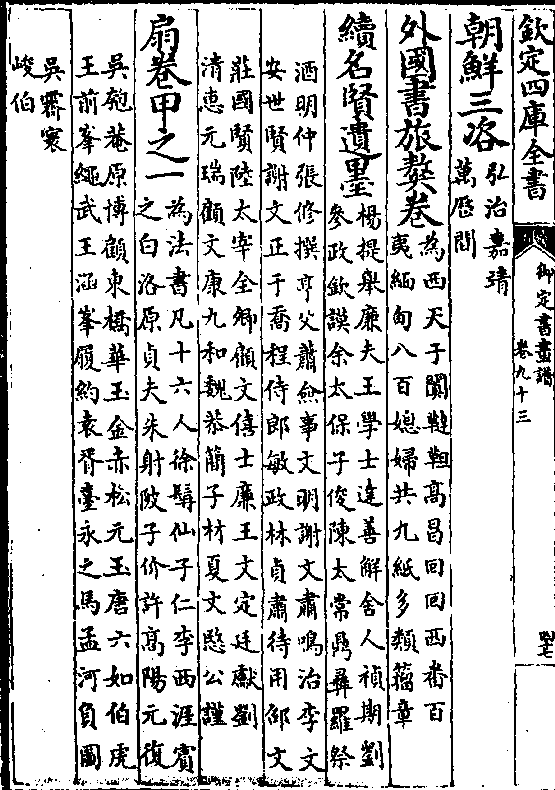 欽定四庫全書
御定書畫譜
卷九十三
朝鮮三咨
弘治嘉靖
萬厯間
外國書旅獒卷
為西天子闐韃靼高昌回回西番百
夷緬甸八百媳婦共九紙多類籀章
續名賢遺墨
楊提舉廉夫王學士達善解舍人禎期劉
參政欽謨余太保子俊陳太常鼎彝羅祭
酒明仲張修撰亨父蕭僉事文明謝文肅鳴治李文
安世賢謝文正于喬程侍郎敏政林貞肅待用邵文
莊國賢陸太宰全卿顧文僖士廉王文定廷獻劉
清惠元瑞顧文康九和魏恭簡子材夏文愍公謹
扇卷甲之一
為法書凡十六人徐髯仙子仁李西涯賓
之白洛原貞夫朱射陂子价許高陽元復
吳匏菴原博顧東橋華玉金赤松元玉唐六如伯虎
王前峯繩武王涵峯履約袁胥臺永之馬孟河負圖
吳霽寰
峻伯